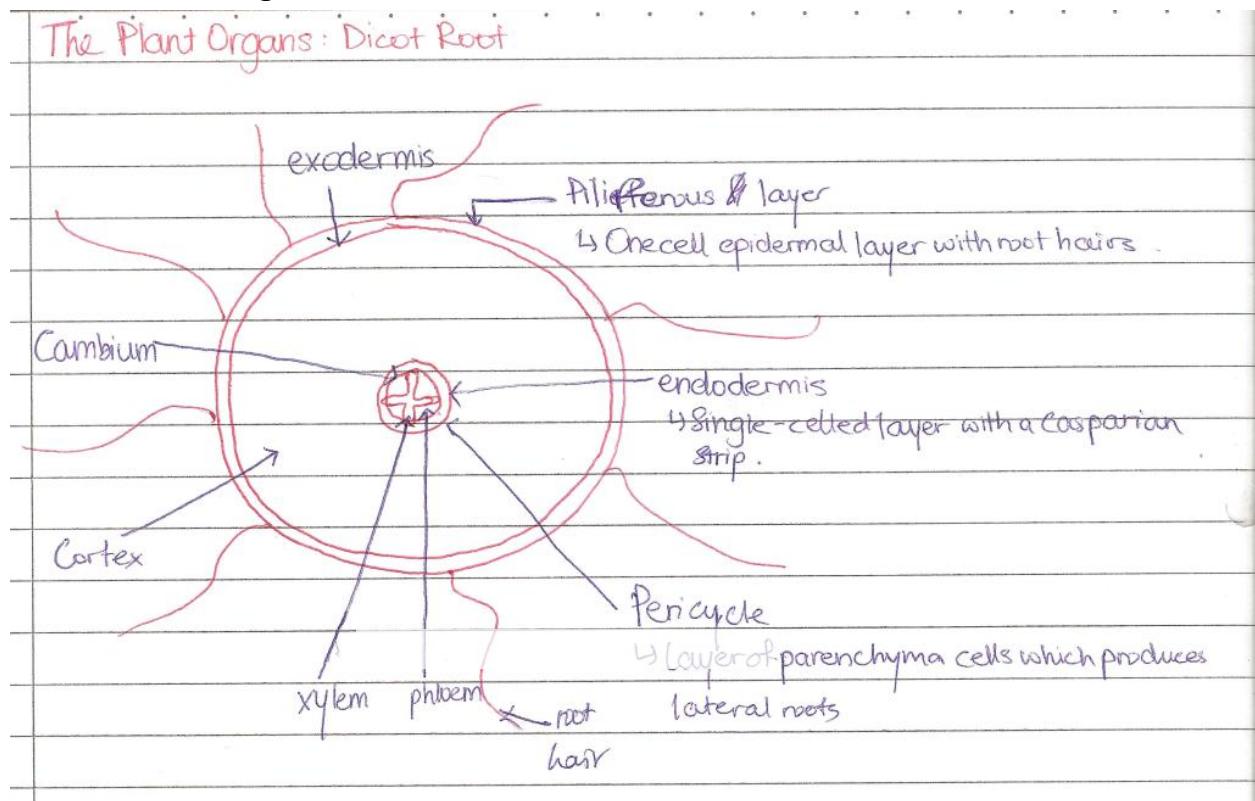 The Plant Organs: Dicot Root
exodermis
Piliferous layer
↳ One cell epidermal layer with root hairs.
Cambium
endodermis
↳ Single-celled layer with a Casparian
strip.
Cortex
Pericycle
↳ Layer of parenchyma cells which produces
lateral roots
xylem
phloem
root
hair